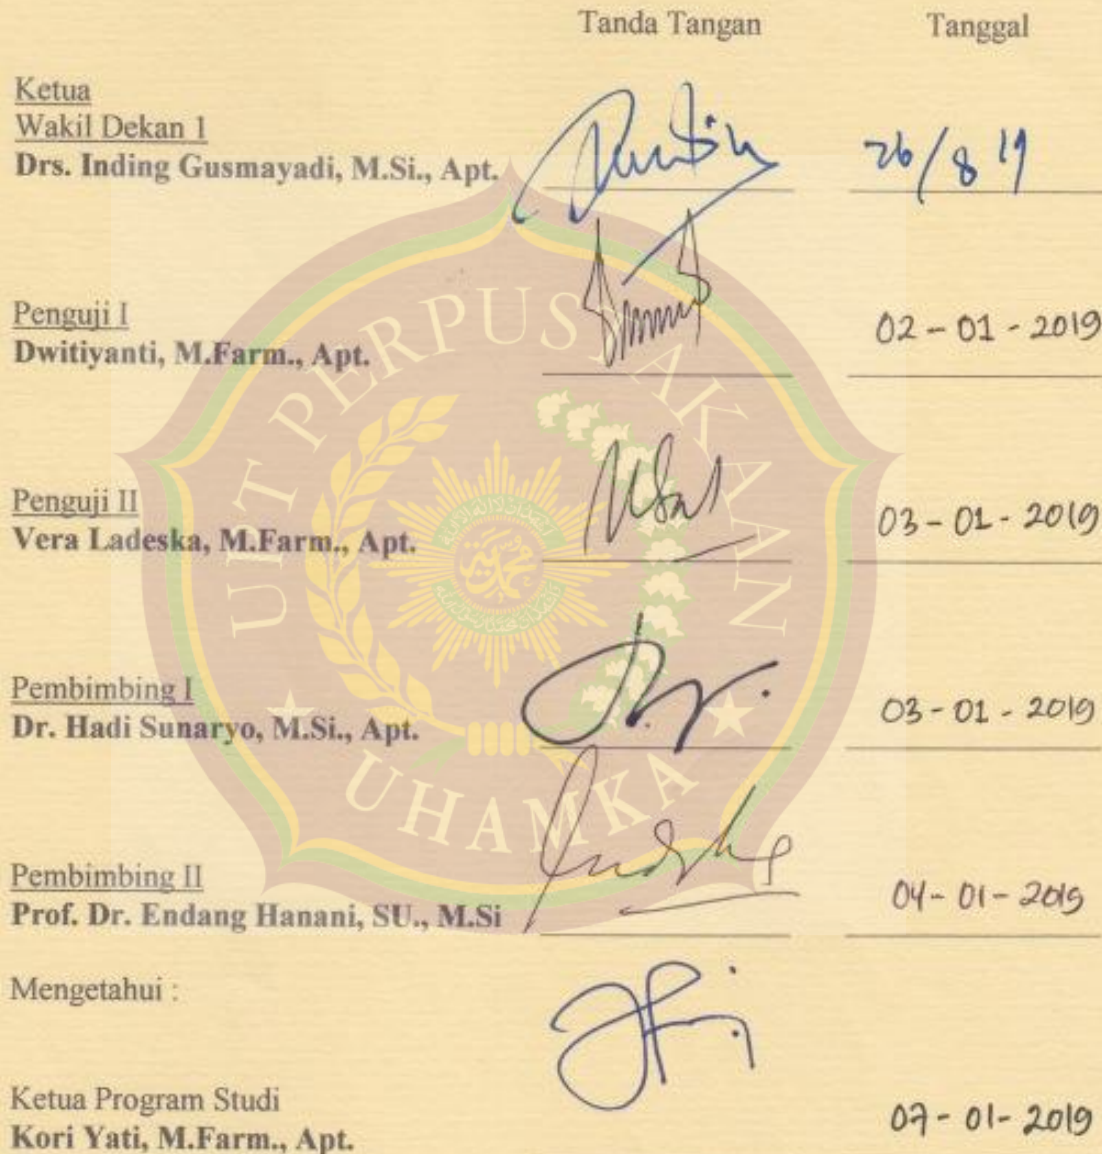 Tanda Tangan Tanggal
Ketua
Wakil Dekan 1
Drs. Inding Gusmayadi, M.Si., Apt. 26/8 19
Penguji I
Dwitiyanti, M.Farm., Apt. 02-01-2019
Penguji II
Vera Ladeska, M.Farm., Apt. 03-01-2019
Pembimbing I
Dr. Hadi Sunaryo, M.Si., Apt. 03-01-2019
Pembimbing II
Prof. Dr. Endang Hanani, SU., M.Si 04-01-2019
Mengetahui :
Ketua Program Studi
Kori Yati, M.Farm., Apt. 07-01-2019
UPT PERPUSTAKAAN
UHAMKA